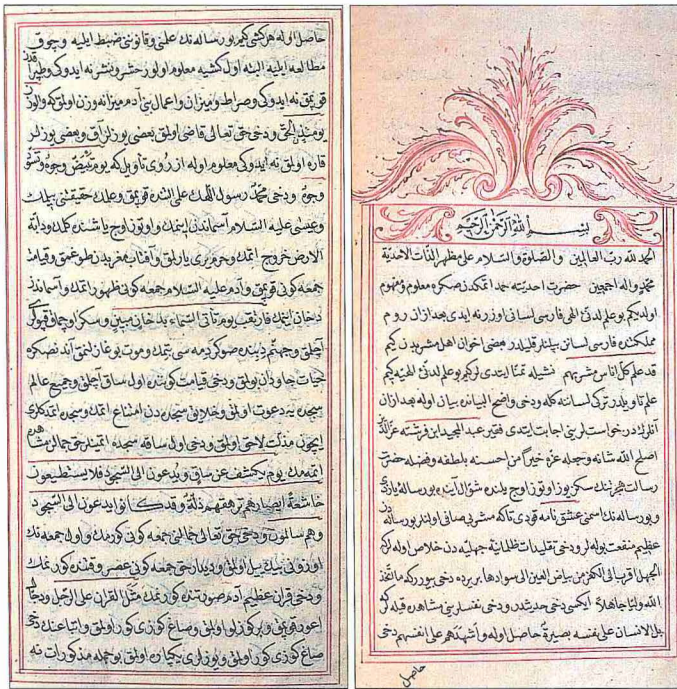 بسم الله الرحمن الرحيم
الحمد لله رب العالمين والصلوة والسلام على مظهر الذات الاحدية
محمد واله اجمعين حضرت احديته حمد اتمكدنصكره معلوم ومفهوم
اوله كم بو علم لدنئ الهى فارسى لسانى اوزرنه ايدى بعد از ان روم
مملكتنده فارسى لسانن بيلنلر بعضى اخوان اهل مشربدن كم
قد علم كل اناس مشربهم تمنا ايتدى لركم بو علم لدنئ الهيه كم
علم تاويلدر تركى لسانه كله ودخى واضح البيانله بيان اوله بعد ازان
انلرك درخواست لرينى اجابت ايتدى فقير عبد المجيد ابن فرشته عز الله
اصلح الله شانه وجعله غزه خيرا من احسنه بلطفه وفضله حضرت
رسالت هجرتنك سكز يوز اوتوز اوچ يلنده شوال آينده بو رساله يازدى
وبو رساله نك اسمنى عشق نامه قودى تاكه مشربى صافى اولنلر بو رساله دن
عظيم منفعت بوله لر ودخى تقليدات ظلمانيۀ جهليه دن خلاص اوله لر كم
الجهل اقرب الى الكفر من بياض العين الى سوادها بريرده دخى بيورر كه ما اتخذ
الله وليا جاهلا ايكسى دخى حديثدر ودخى نفسلرينى مشاهده قيله لر كم
بل الانسان على نفسه بصيرة حاصل اوله واشهدهم على انفسهم دخى
حاصل
حاصل اوله هر كشى كيم بو رساله نك علمنى وقانونى ضبط ايليه وچوق
مطالعه ايليه البته اول كشيه معلوم اولور حشر ونشر نه ايدوكى وطيراقدن
قوپمق نه ايدوكى وصراط وميزان واعمال بنى آدم ميزانه وزن اولمق كه والوزن
يومئذ الحق ودخى حق تعالى قاضى اولمق بعضى يوزلر آق وبعضى يوزلر
قاره اولمق نه ايدوكى معلوم اوله از روى تاويل كه يوم تبيض وجوه وتسود
وجوه ودخى محمد رسول اللهك علمى قوپمق وعلمك حقيقتنى بيلمك
وعيسى عليه السلام آسماندن اينمك واوتوز اوچ ياشنده كلمك ودابة
الارض خروج اتمك وخرم برى يارلمق وآفتاب مغربدن طوغمق وقيامت
جمعه كونى قوپمق وآدم عليه السلام جمعه كونى ظهور اتمك وآسماندن
دخان اينمك فارتقب يوم تاتى السماء بدخان مبين وسكز اوچماق قپولرى
آچلمق وجهنم ديبنده صو كردمه سى بتمك وموت بوغازلنمق آندنصكره
حيات جاودان بولمق ودخى قيامت كوننده اول ساق آچلمق وجميع عالم
سجده يه دعوت اولمق وخلايق سجده دن امتناع اتمك وسجده اتمدكلرى
ايچون مذلت لاحق اولمق ودخى اول ساقه سجده اتمينلر حق جمالن مشاهده
اتمه مك يوم يكشف عن ساق ويدعون الى السجود فلا يستطيعون
خاشعة ابصارهم ترهقهم ذلة وقد كانوا يدعون الى السجود
وهم سالمون ودخى حق تعالى جمالنى جمعه كونى كورمك واول جمعه نك
اوزونى بيك ييل اولمق وديدار حق جمعه كونى عصر وقتنده كورنمك
ودخى قران عظيم آدم صورتنده كورنمك مثل القران على الرجل ودجال
اعور قوپمق وبر كوزلو اولمق وصاغ كوزى كور اولمق واتباعنك دخى
صاغ كوزى كور اولمق ويوزلرى يكپاره اولمق بو جمله مذكورات نه